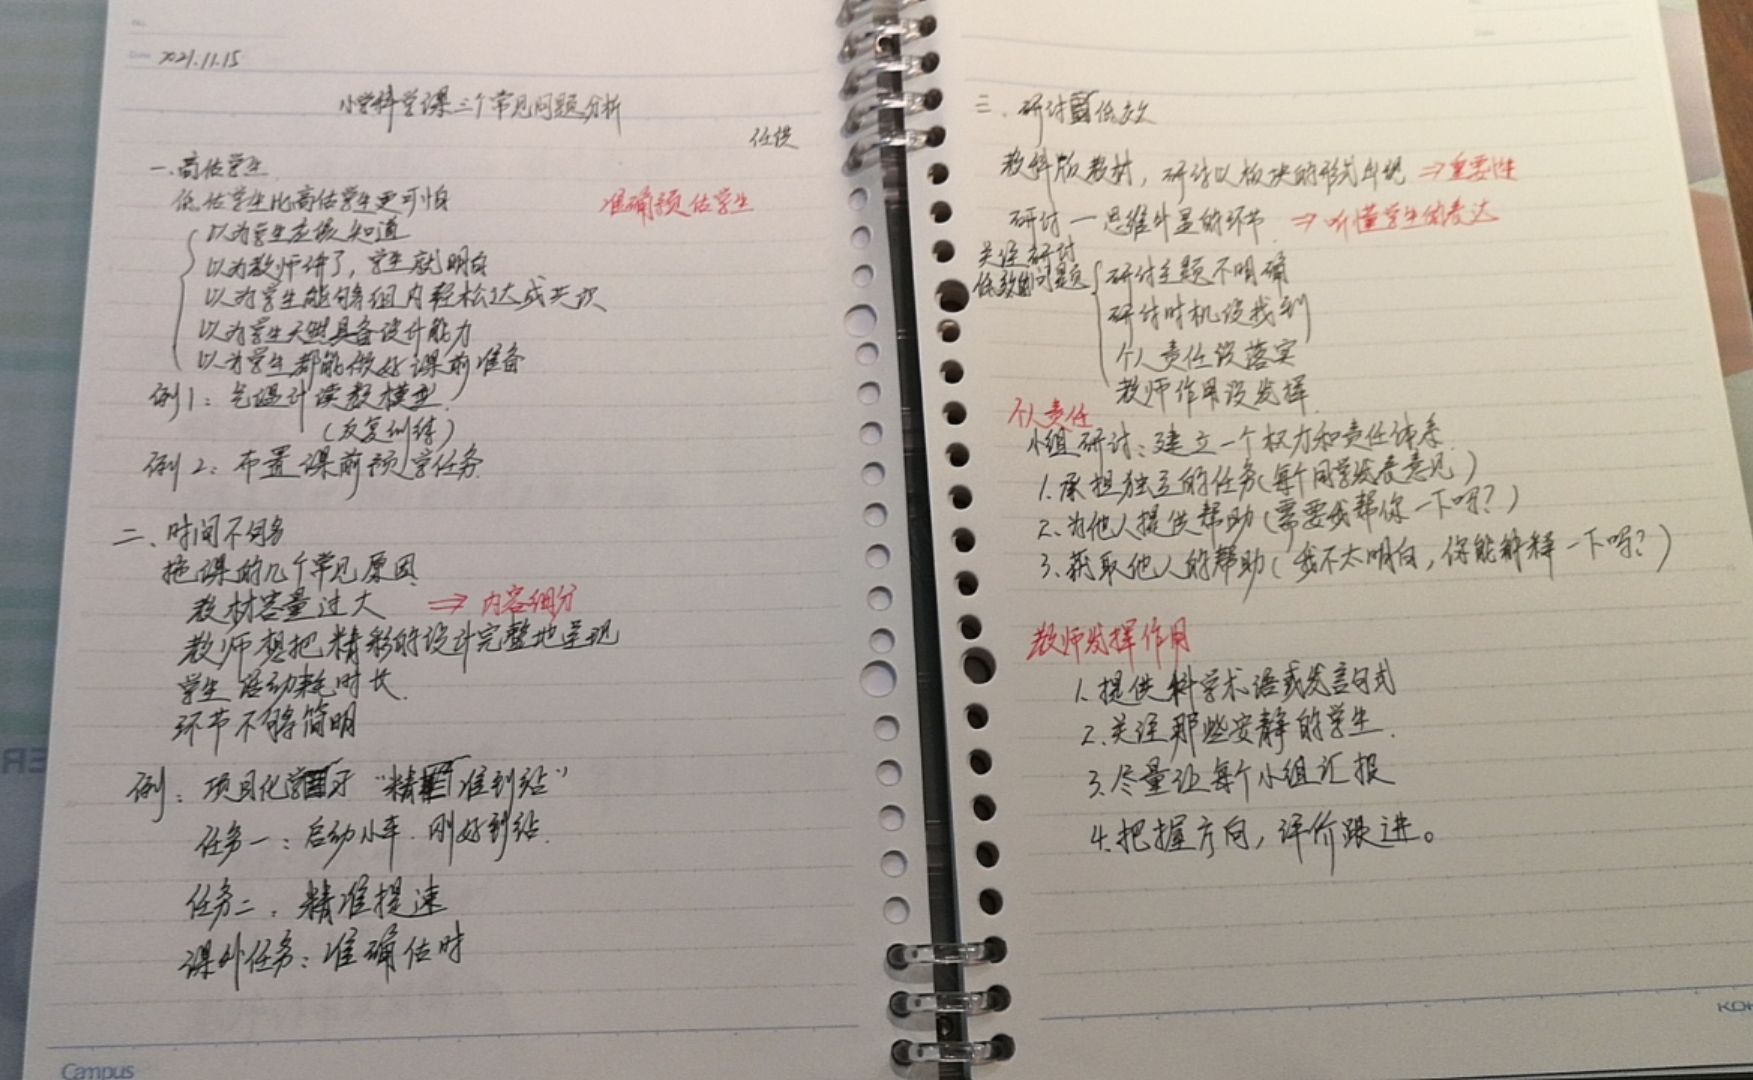 2021.11.15
小学科学课三个常见问题分析
任提
一、高估学生
低估学生比高估学生更可怕
准确预估学生
以为学生应该知道
以为教师讲了，学生就明白
以为学生能够组内轻松达成共识
以为学生天然具备设计能力
以为学生都能做好课前准备
例1：气温计读数模型
（反复训练）
例2：布置课前预学任务
二、时间不够
拖课的几个常见原因
教材容量过大 ⇒ 内容细分
教师想把精彩的设计完整地呈现
学生活动耗时长
环节不够简明
例：项目化 “精准到站”
任务一：启动小车 刚好到站
任务二：精准提速
课外任务：准确估时
Campus
三、研讨低效
教科版教材，研讨以板块的形式出现 ⇒ 重要性
研讨—思维外显的环节 ⇒ 听懂学生的表达
关注研讨
低效的问题
研讨主题不明确
研讨时机没找到
个人责任没落实
教师作用没发挥
个人责任
小组研讨：建立一个权力和责任体系
1.承担独立的任务（每个同学发表意见）
2.为他人提供帮助（需要我帮你一下吗？）
3.获取他人的帮助（我不太明白，你能解释一下吗？）
教师发挥作用
1.提供科学术语或发言句式
2.关注那些安静的学生
3.尽量让每个小组汇报
4.把握方向，评价跟进。